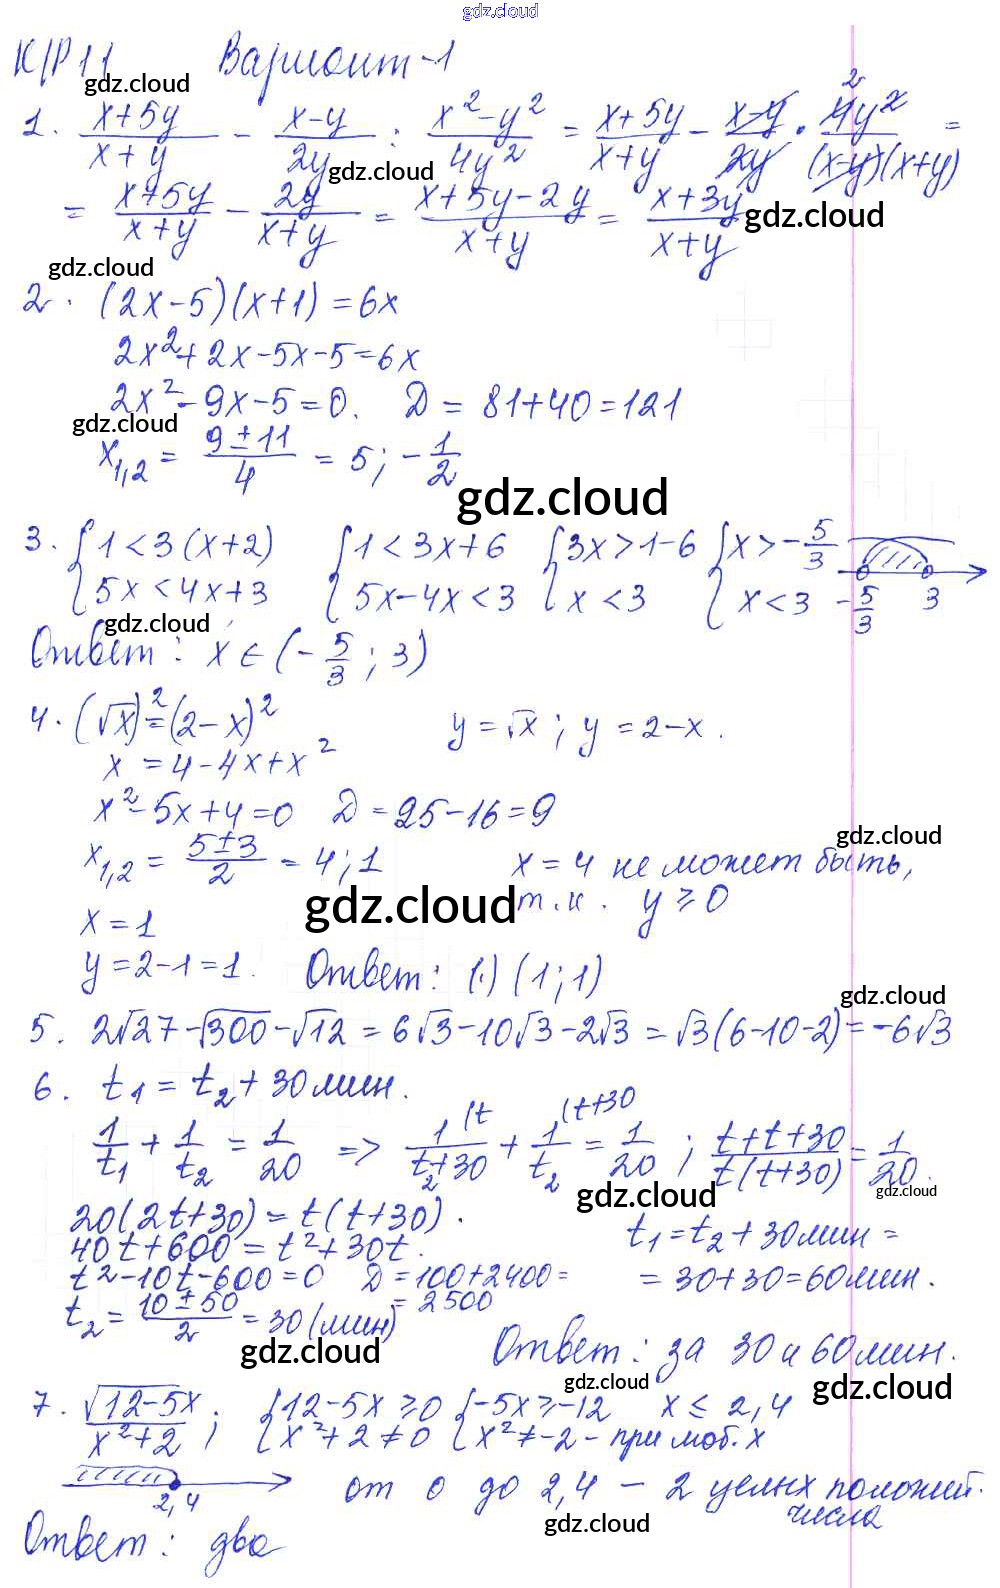 gdz.cloud
К/Р 11 Вариант-1
gdz.cloud
1. (x+5y)/(x+y) - (x-y)/(2y) : (x²-y²)/(4y²) = (x+5y)/(x+y) - (x-y)/(2y) · (4y²)/((x-y)(x+y)) =
gdz.cloud
= (x+5y)/(x+y) - (2y)/(x+y) = (x+5y-2y)/(x+y) = (x+3y)/(x+y)
gdz.cloud
gdz.cloud
2. (2x-5)(x+1)=6x
2x²+2x-5x-5=6x
2x²-9x-5=0. Д=81+40=121
gdz.cloud
x₁,₂ = (9±11)/4 = 5; -1/2
gdz.cloud
3. {1<3(x+2) {1<3x+6 {3x>1-6 {x>-5/3
{5x<4x+3 {5x-4x<3 {x<3 {x<3 -5/3 3
gdz.cloud
Ответ: x∈(-5/3; 3)
4. (√x)²=(2-x)² y=√x; y=2-x.
x=4-4x+x²
x²-5x+4=0 Д=25-16=9
gdz.cloud
x₁,₂ = (5±3)/2 = 4; 1 x=4 не может быть,
gdz.cloud
т.к. y≥0
x=1
y=2-1=1. Ответ: (·) (1; 1)
gdz.cloud
5. 2√27-√300-√12=6√3-10√3-2√3=√3(6-10-2)=-6√3
6. t₁=t₂+30мин.
1/t₁ + 1/t₂ = 1/20 => 1/(t₂+30) (t + 1/t₂ (t+30 = 1/20; (t+t+30)/(t(t+30)) = 1/20.
gdz.cloud
gdz.cloud
20(2t+30)=t(t+30). t₁=t₂+30мин=
40t+600=t²+30t. =30+30=60мин.
t²-10t-600=0 Д=100+2400=
=2500
t₂ = (10±50)/2 = 30(мин)
gdz.cloud
Ответ: за 30 и 60мин.
gdz.cloud
gdz.cloud
7. √(12-5x)/(x²+2); {12-5x≥0 {-5x≥-12 x≤2,4
{x²+2≠0 {x²≠-2 - при люб. x
2,4
от 0 до 2,4 - 2 целых положит.
числа
gdz.cloud
Ответ: два